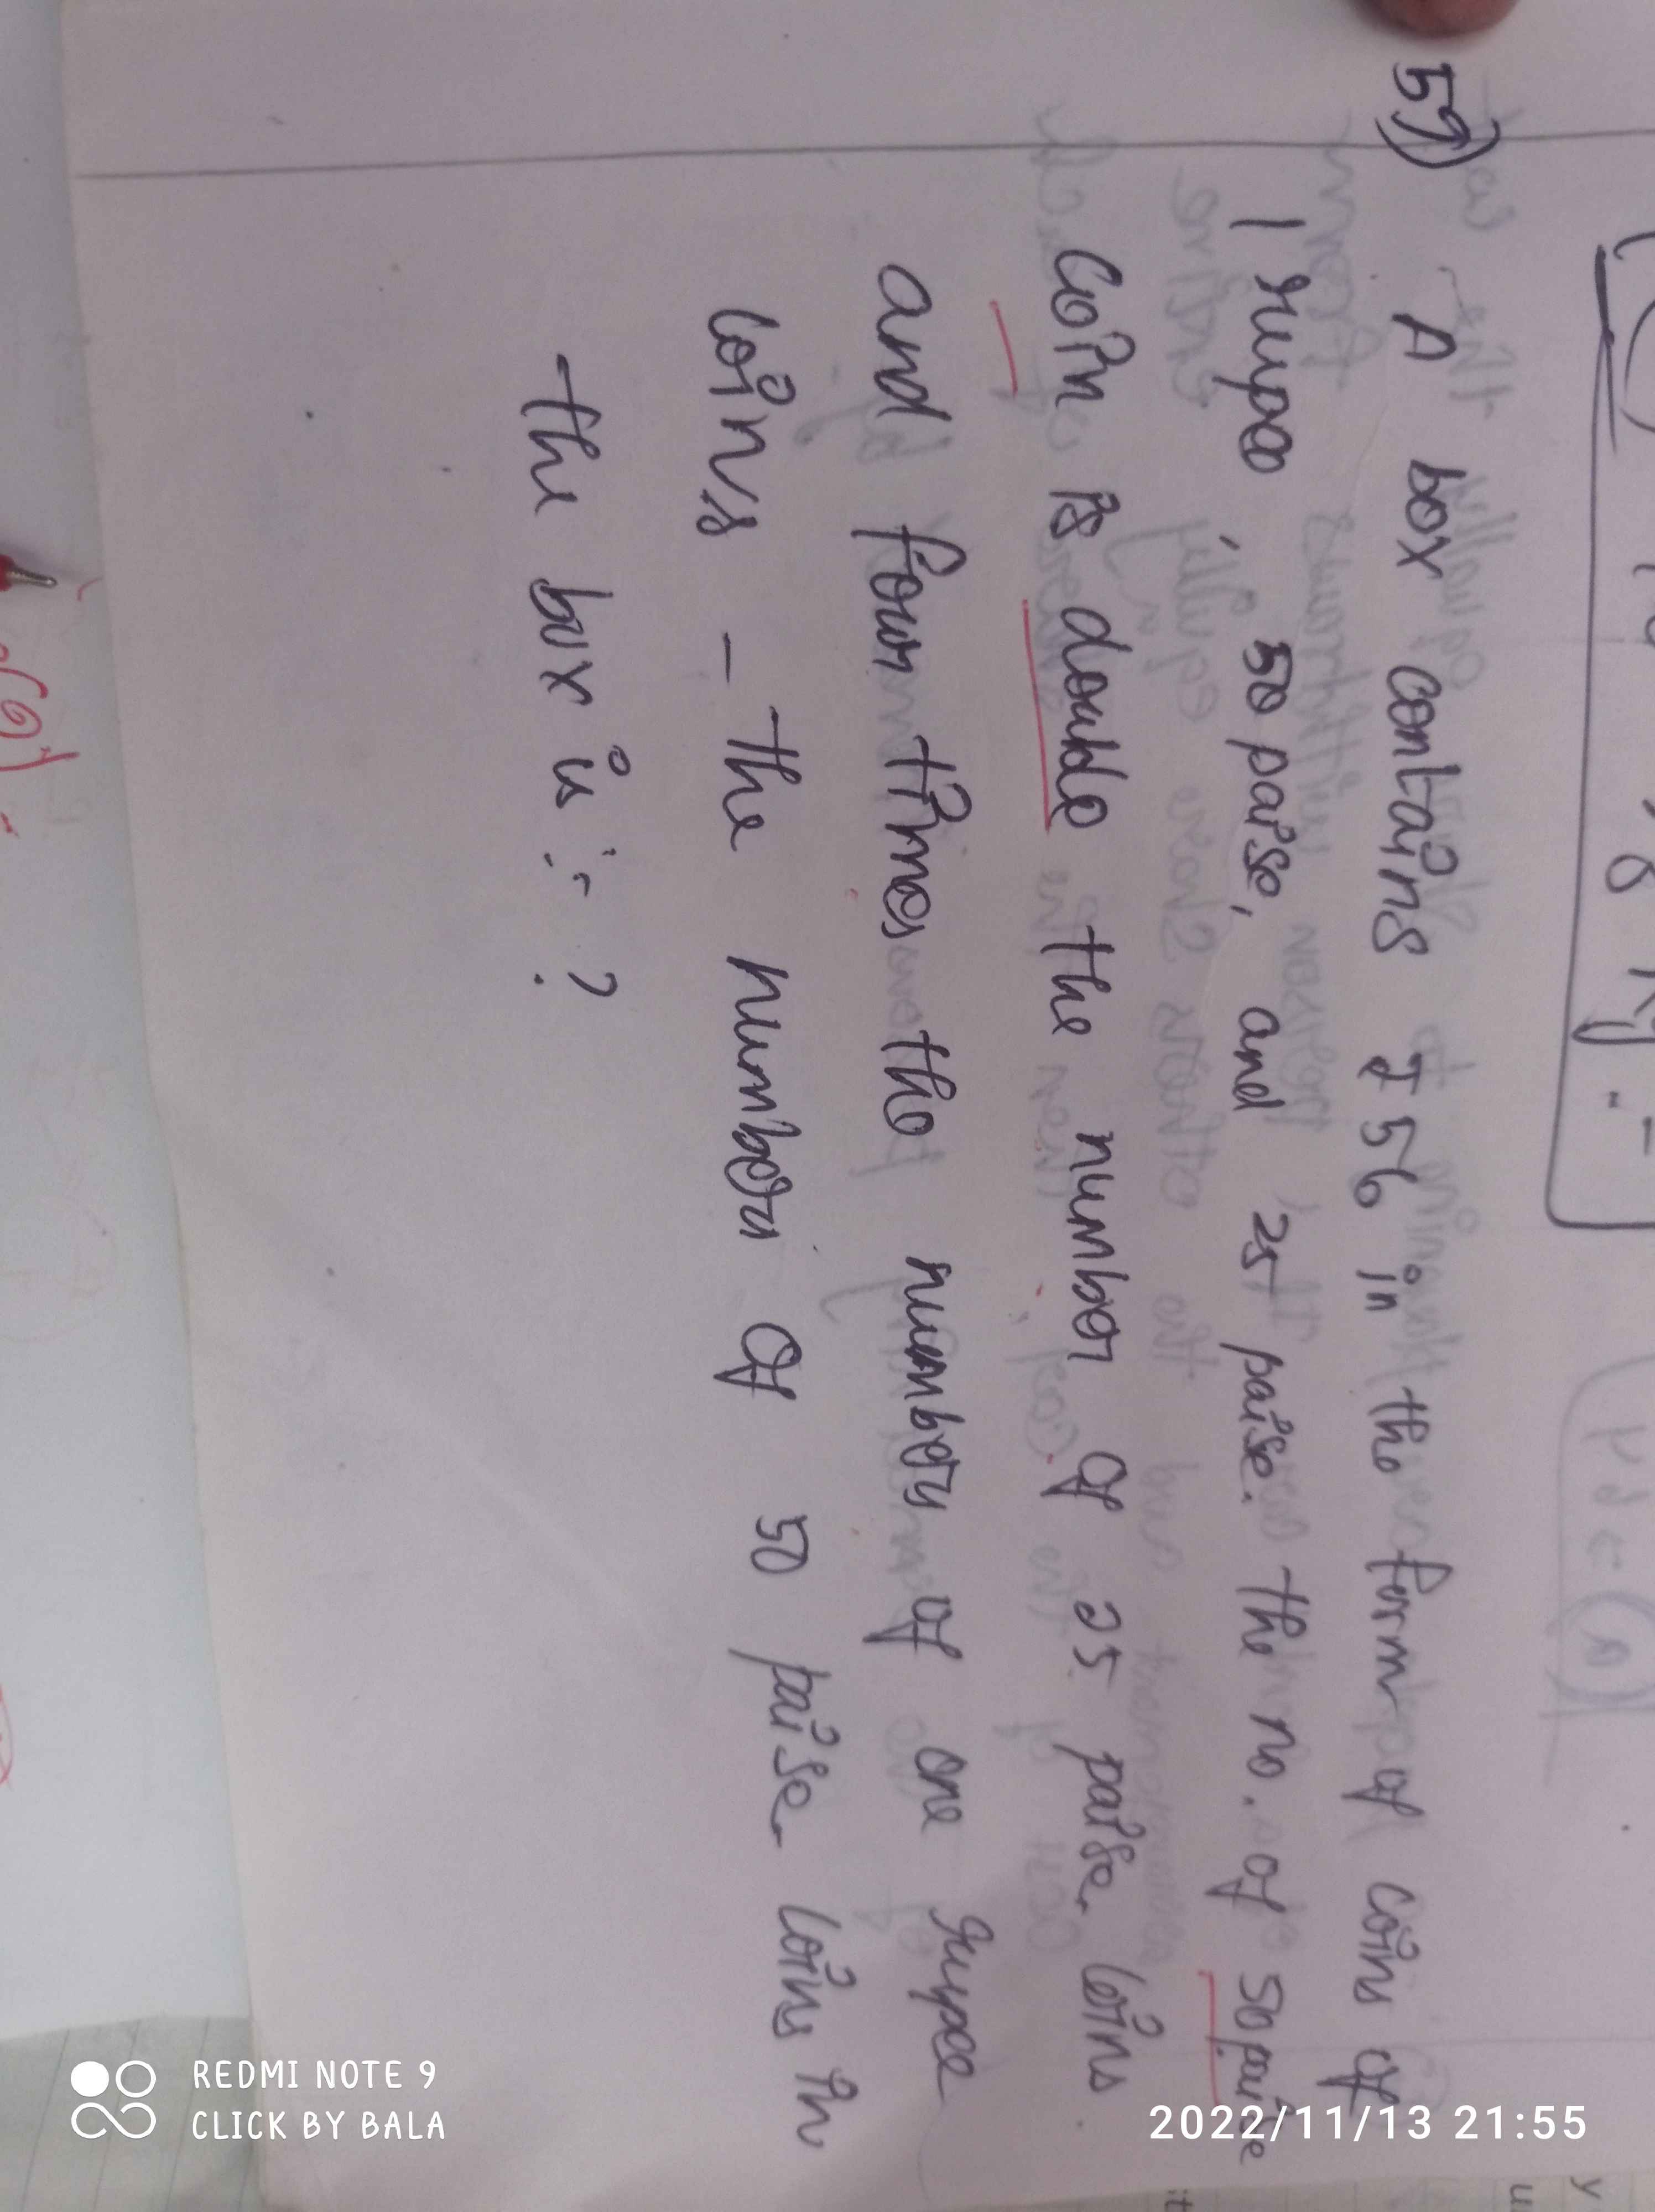 59) A box contains ₹ 56 in the form of coins of
1 rupee, 50 paise, and 25 paise. the no. of 50 paise
Coin is double the number of 25 paise coins
and four times the numbers of one rupee
coins - the number of 50 paise coins in
the box is :- ?
REDMI NOTE 9
CLICK BY BALA
2022/11/13 21:55